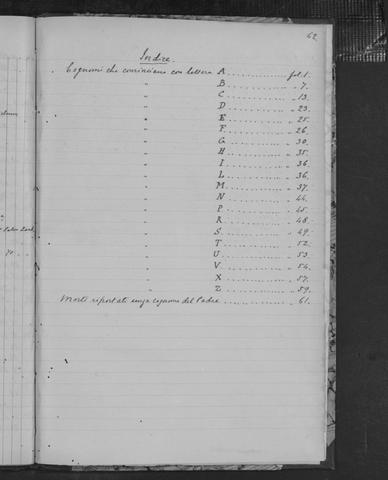 62
Indice
Cognomi che cominciano con lettera A .......... fol. 1.
" B .......... " 7.
" C .......... " 13.
" D .......... " 23.
" E .......... " 25.
" F .......... " 26.
" G .......... " 30.
" H .......... " 35.
" I .......... " 36.
" L .......... " 36.
" M .......... " 37.
" N .......... " 44.
" P .......... " 45.
" R .......... " 48.
" S .......... " 49.
" T .......... " 52.
" U .......... " 53.
" V .......... " 54.
" X .......... " 57.
" Z .......... " 59.
Morti riportati senza cognome del Padre .......... " 61.